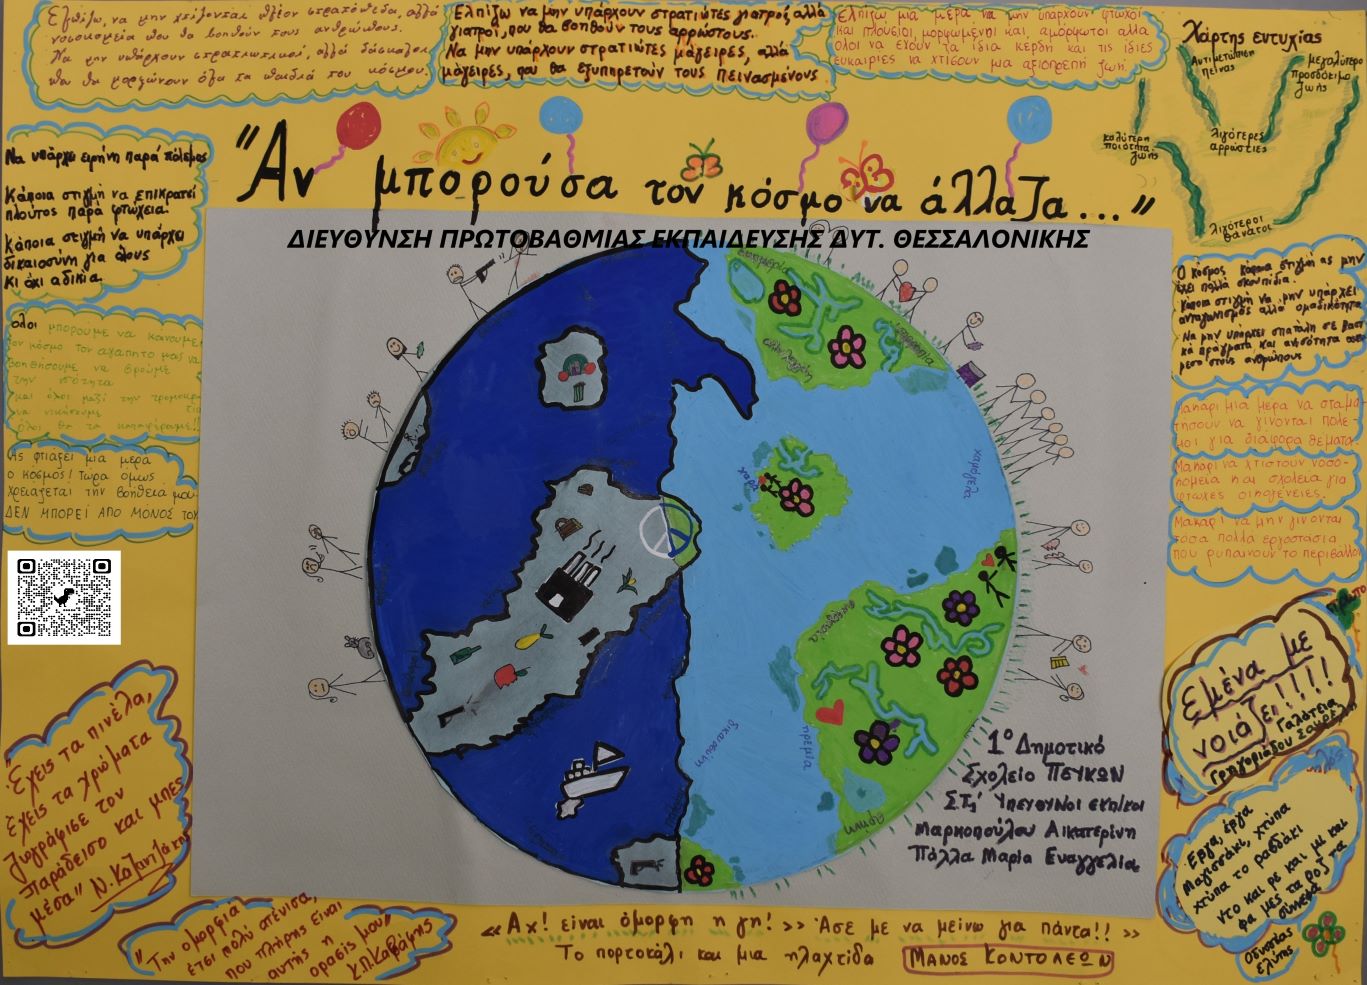 Ελπίζω, να μην χτίζονται πλέον στρατόπεδα, αλλά
νοσοκομεία που θα βοηθούν τους ανθρώπους.
Να μην υπάρχουν στρατιωτικοί, αλλά δάσκαλοι
που θα μορφώνουν όλα τα παιδιά του κόσμου.
Ελπίζω να μην υπάρχουν στρατιώτες γιατροί, αλλά
γιατροί, που θα βοηθούν τους αρρώστους.
Να μην υπάρχουν στρατιώτες μάγειρες, αλλά
μάγειρες, που θα εξυπηρετούν τους πεινασμένους
Ελπίζω μια μέρα να μην υπάρχουν φτωχοί
και πλούσιοι, μορφωμένοι και αμόρφωτοι αλλά
όλοι να έχουν τα ίδια κέρδη και τις ίδιες
ευκαιρίες να χτίσουν μια αξιοπρεπή ζωή
Χάρτης ευτυχίας
Αντιμετώπιση
πείνας
μεγαλύτερο
προσδόκιμο
ζωής
καλύτερη
ποιότητα
ζωής
λιγότερες
αρρώστιες
λιγότεροι
θάνατοι
"Αν μπορούσα τον κόσμο να άλλαζα..."
ΔΙΕΥΘΥΝΣΗ ΠΡΩΤΟΒΑΘΜΙΑΣ ΕΚΠΑΙΔΕΥΣΗΣ ΔΥΤ. ΘΕΣΣΑΛΟΝΙΚΗΣ
Να υπάρχει ειρήνη παρά πόλεμος
Κάποια στιγμή να επικρατεί
πλούτος παρά φτώχεια.
Κάποια στιγμή να υπάρχει
δικαιοσύνη για όλους
κι όχι αδικία.
όλοι μπορούμε να κάνουμε
τον κόσμο τον αχάπητο μας να
βοηθήσουμε να βρούμε
την ισότητα
και όλοι μαζί την τρομοκρ
να νικήσουμε
όλοι θα τα καταφέρουμε!!
Ας φτιάξει μια μέρα
ο κόσμος! Τώρα όμως
χρειάζεται την βοήθεια μου
ΔΕΝ ΜΠΟΡΕΙ ΑΠΟ ΜΟΝΟΣ ΤΟΥ
Ο κόσμος κάποια στιγμή ας μην
έχει πολλά σκουπίδια.
Κάποια στιγμή να μην υπάρχει
ανταγωνισμός αλλά ομαδικότητα
Να μην υπάρχει σπατάλη σε βασι
κά πράγματα και ανισότητα
μεσα στους ανθρώπους
Μακάρι μια μέρα να σταμα
τήσουν να γίνονται πόλε-
μοι για διάφορα θέματα.
Μακάρι να χτιστούν νοσο-
κομεία και σχολεία για
φτωχές οικογένειες.
Μακάρι να μην γίνονται
τόσα πολλά εργοστάσια
που ρυπαίνουν το περιβάλλον
χαρά
χαμόγελα
δικαιοσύνη
ηρεμία
1ο Δημοτικό
Σχολείο Πεύκων
ΣΤ1' Υπεύθυνοι εκπ/κοι
Μαρκοπούλου Αικατερίνη
Πάλλα Μαρία Ευαγγελία
Εμένα με
νοιάζει!!!!
Γαλάτεια
Γρηγοριάδου Σουρέλη
"Έχεις τα πινέλα,
έχεις τα χρώματα
ζωγράφισε τον
παράδεισο και μπες
μέσα" Ν. Καζαντζάκης
"Την ομορφιά
έτσι πολύ ατένισα,
που πλήρης είναι
αυτής η
όρασίς μου"
Κ.Π. Καβάφης
«Αχ! είναι όμορφη η γη!» "Άσε με να μείνω για πάντα!!»
Το πορτοκάλι και μια ηλαχτίδα ΜΑΝΟΣ ΚΟΝΤΟΛΕΩΝ
Έργα, έργα
Μαγισσάκι, χτύπα
χτύπα το ραβδάκι
ντο και ρε και μι και
φα μες τα ροζ τα
σύννεφα
Οδυσσέας
Ελύτης